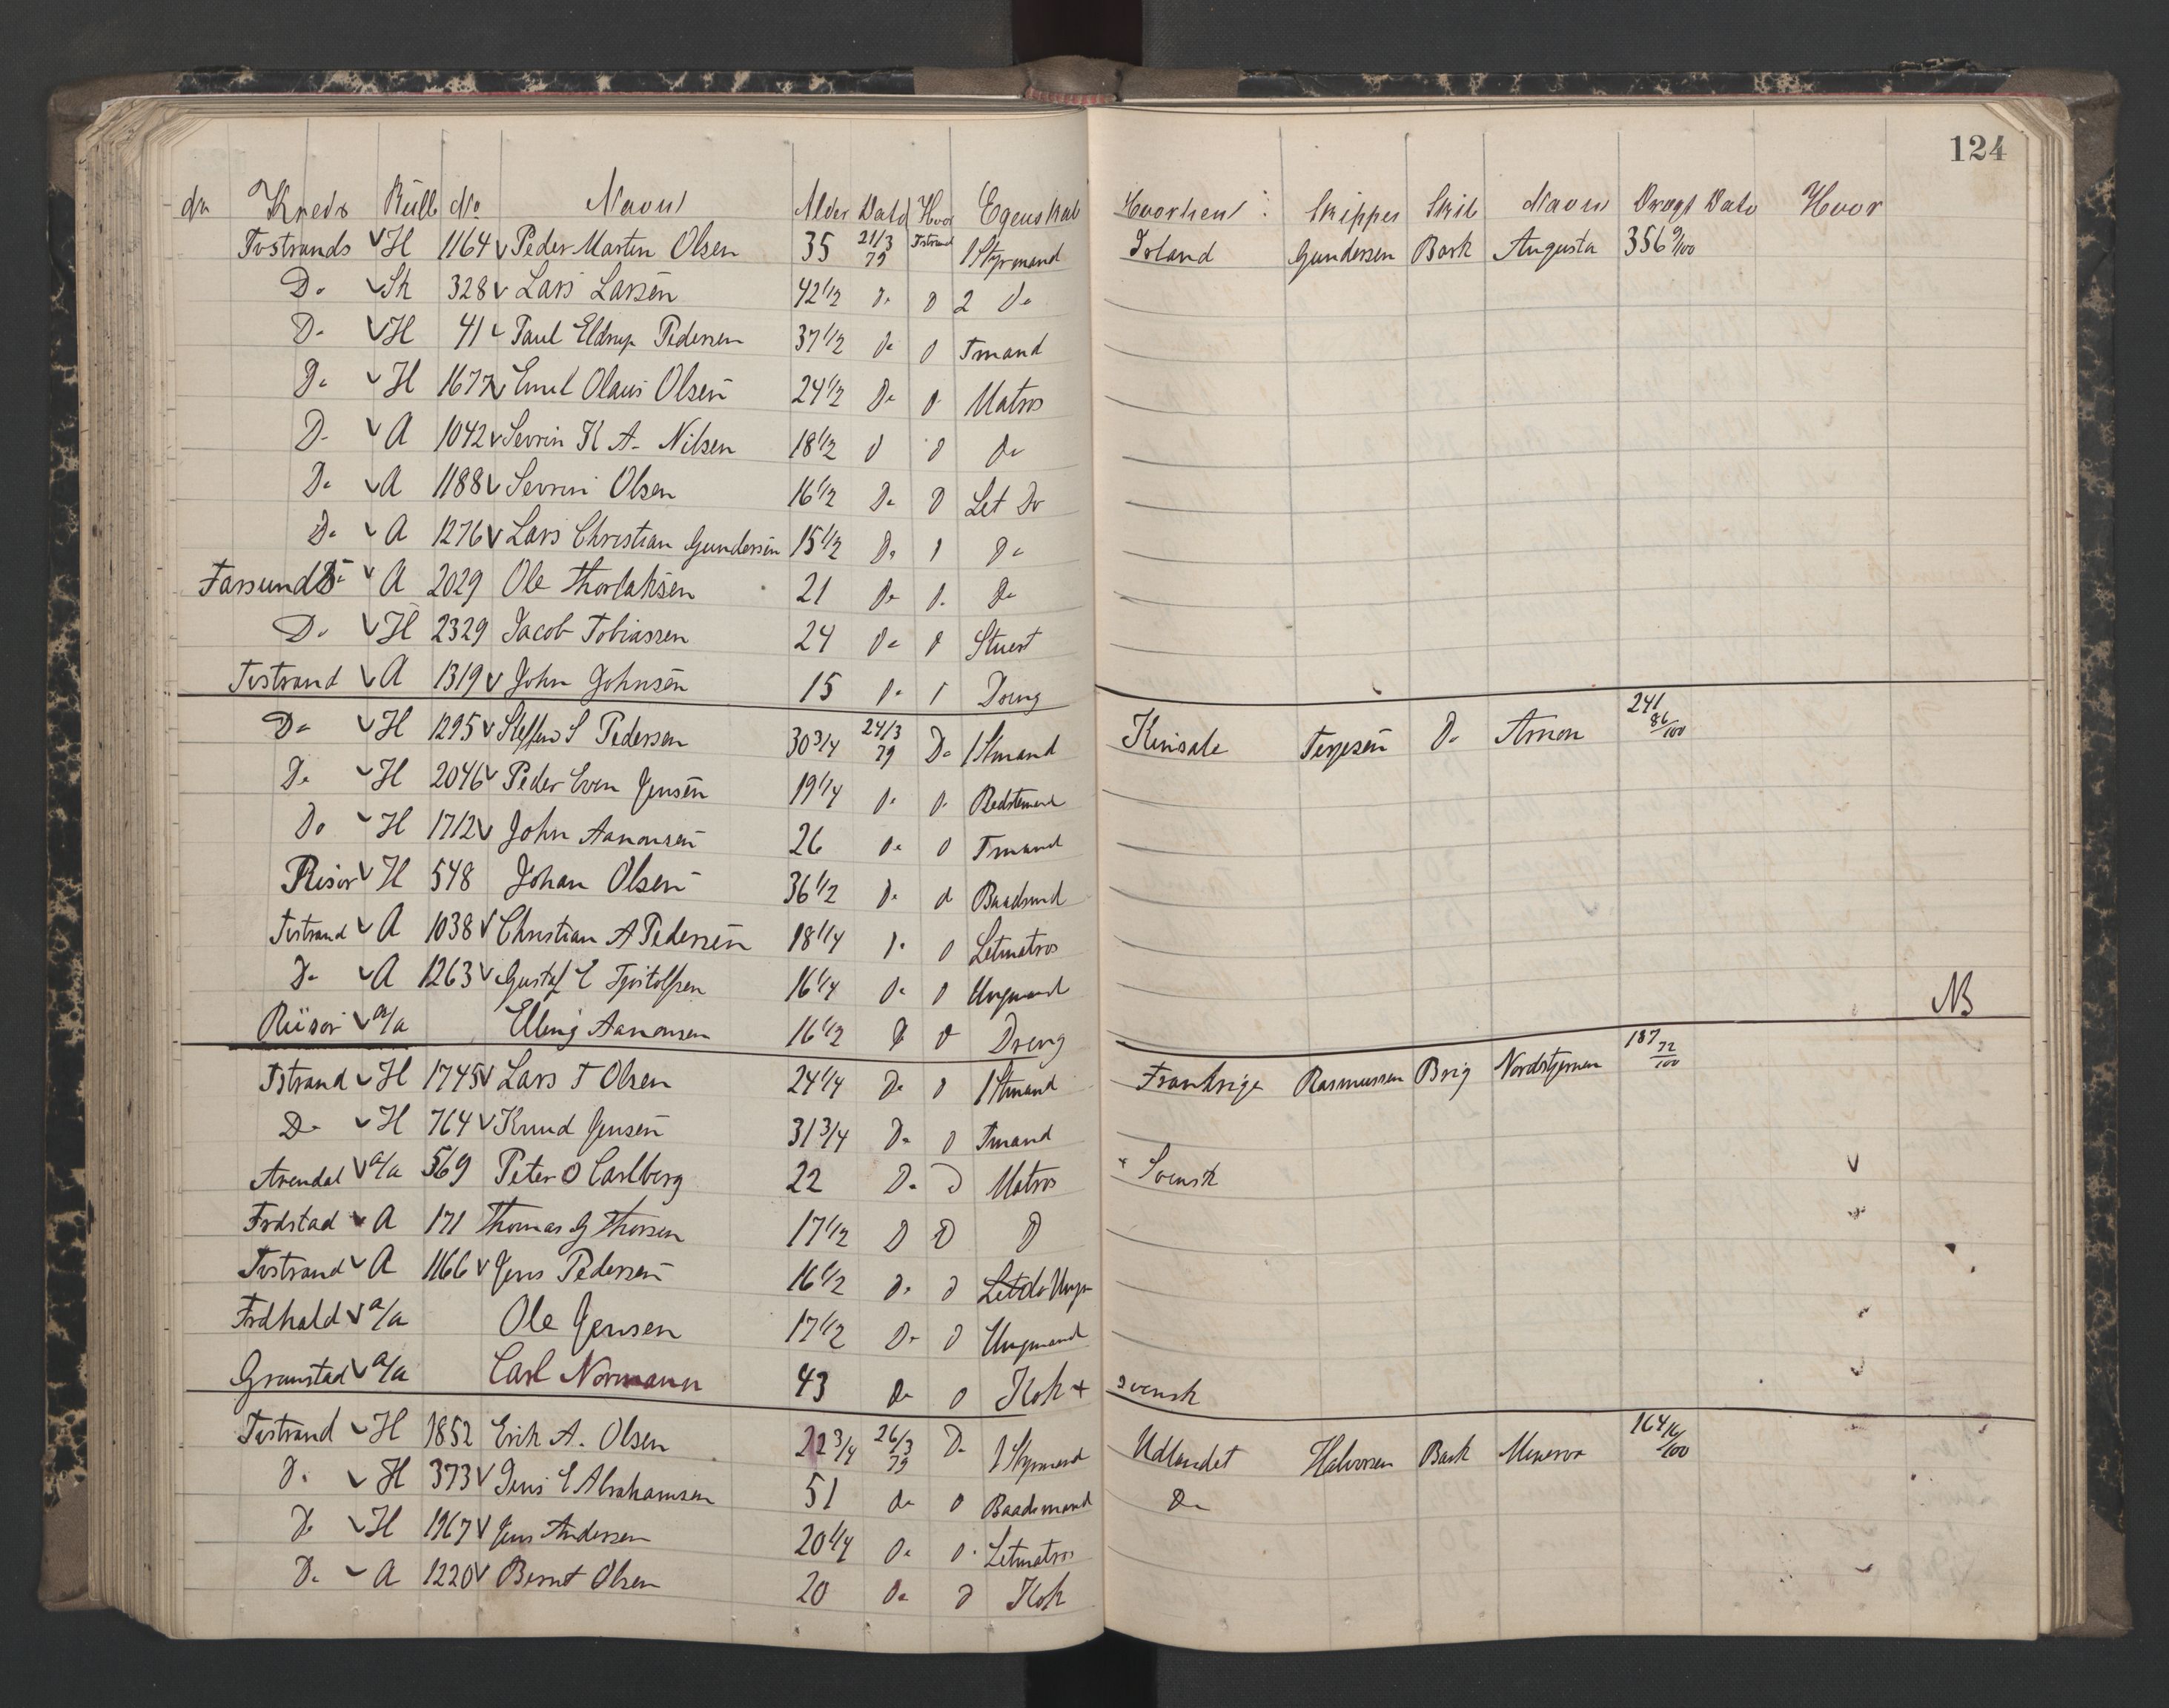 124
No Kreds Rulle No Navn Alder Dato Hvor Egenskab Hvorhen Skipper Skib Navn Drægt Dato Hvor
Tvstrands H 1164 Peder Marten Olsen 35 21/3 79 Tvstrand 1 Styrmand Irland Gundersen Bark Augusta 356 9/100
Do Sk 328 Lars Larsen 42 1/2 Do D 2 Do
Do H 41 Paul Eldrup Pedersen 37 1/2 Do D Tmand
Do H 1677 Emil Olaus Olsen 24 1/2 Do D Matros
Do A 1042 Sevrin K A. Nilsen 18 1/2 D D Do
Do A 1188 Sevrin Olsen 16 1/2 Do D Let Do
Do A 1276 Lars Christian Gundersen 15 1/2 Do D Do
Farsunds A 2029 Ole Thorlaksen 21 Do D. Do
Do H 2329 Jacob Tobiassen 24 Do D Stuert
Tvstrand A 1319 John Johnsen 15 Do D Dreng
Do H 1295 Steffen S Pedersen 30 3/4 24/3 79 Do 1 Stmand Kinsale Terjesen Do Arnon 241 86/100
Do H 2046 Peder Even Jensen 19 1/4 Do D. Bedstemand
Do H 1712 John Aanonsen 26 Do D Tmand
Risør H 548 Johan Olsen 36 1/2 Do d Baadsmd
Tvstrand A 1038 Christian A Pedersen 18 1/4 D. D Letmatros
Do A 1263 Gustaf E Tjøstolfsen 16 1/4 Do D Ungmand
Riisør a/a Elling Aanonsen 16 1/2 D D Dreng NB
Tstrand H 1745 Lars T Olsen 24 1/4 Do D 1 Stmand Frankrige Rasmussen Brig Nordstjernen 187 72/100
Do H 764 Knud Jensen 31 3/4 Do D Tmand
Arendal a/a 569 Peter O Carlberg 22 Do D Matros + Svensk
Frdstad A 171 Thomas G Thorsen 17 1/2 D D D
Tvstrand A 1166 Jens Pedersen 16 1/2 Do D Letdo Ungm
Frdhald a/a Ole Jensen 17 1/2 Do D Ungmand
Grimstad a/a Carl Normann 43 do D Kok + svensk
Tvstrand H 1852 Erik A. Olsen 22 3/4 26/3 79 Do 1 Styrmand Udlandet Halvorsen Bark Minerva 164 16/100
Do H 373 Jens E Abrahamsen 51 do D Baadsmand Do
Do H 1967 Jens Andersen 20 1/4 Do D. Letmatros
Do A 1220 Bernt Olsen 20 Do D Kok